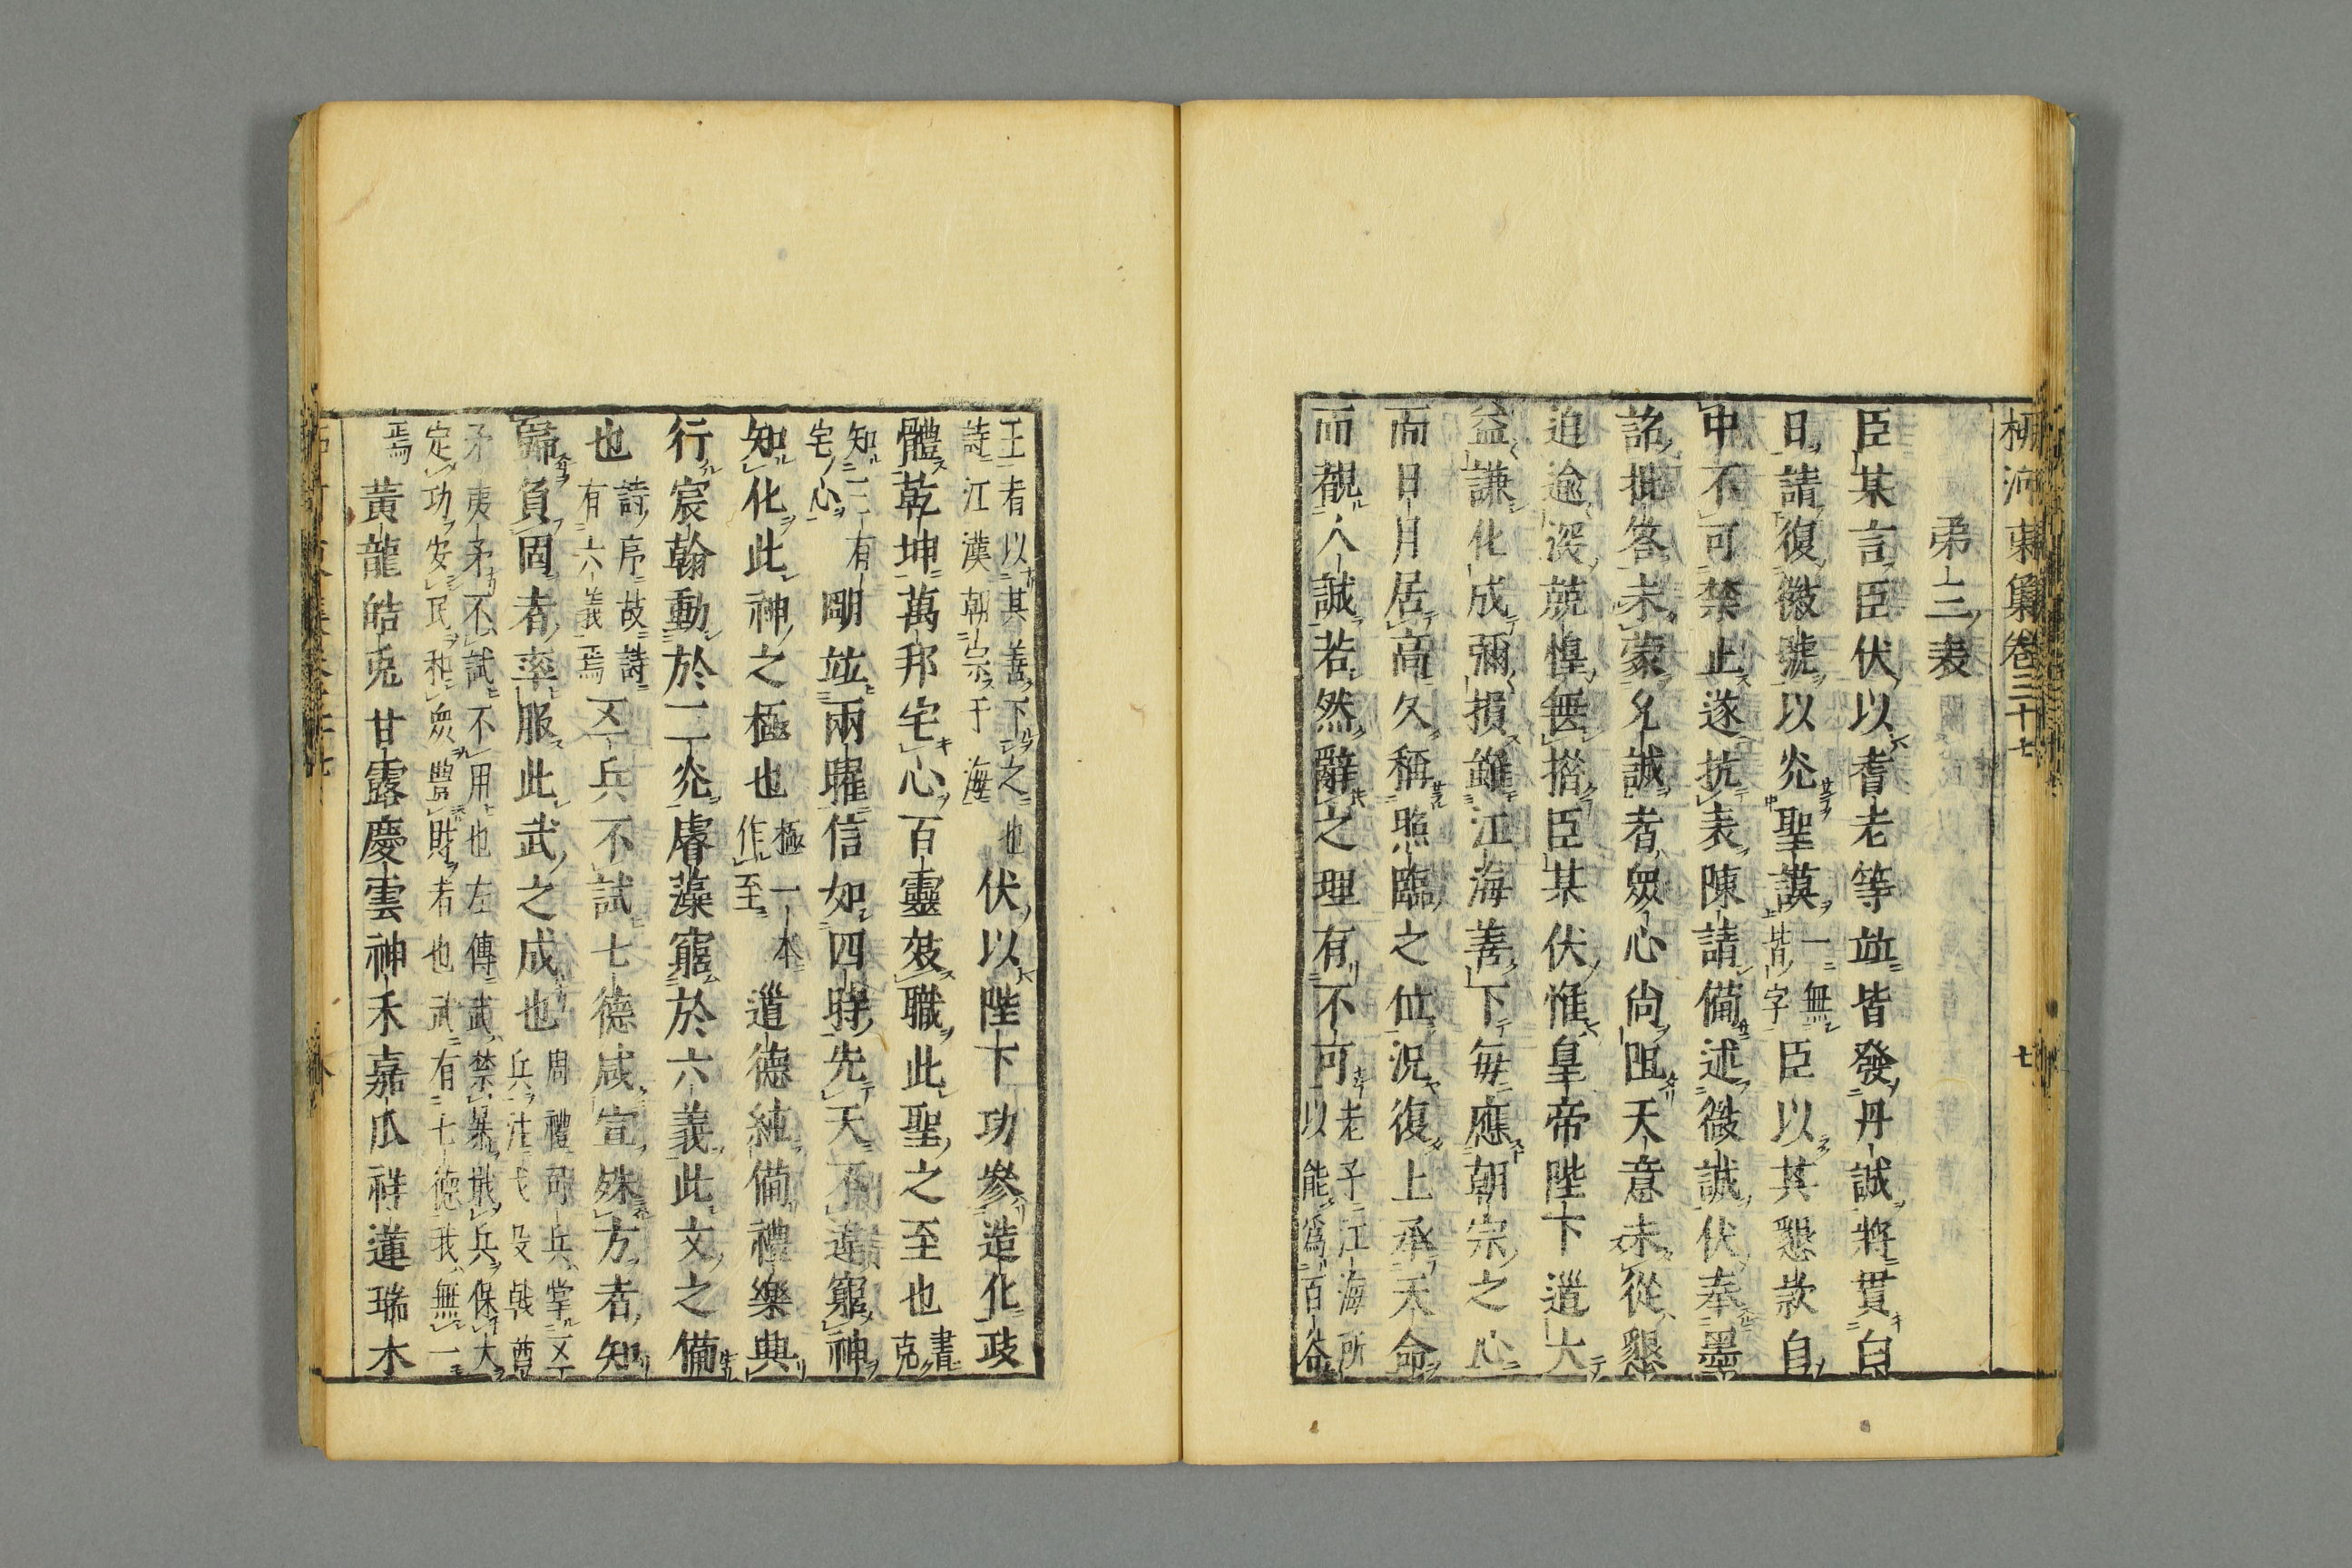 柳河東集卷三十七　七
第三表
臣某言臣伏以耆老等竝皆發丹誠將貫白
日請復徽號以炎聖謨一無皆字臣以其懇款自
中不可禁止遂抗表陳請備述微誠伏奉墨
詔批答未蒙允誠者衆心尚阻天意未從懇
迫逾深兢惶無措臣某伏惟皇帝陛下道大
益謙化成彌損雖江海善下每應朝宗之心
而日月居高久稱照臨之位況復上承天命
而觀人誠若然辭之理有不可老子江海所以能爲百谷
王者以其善下之也詩江漢朝宗于海伏以陛下功參造化政
體乾坤萬邦宅心百靈效職此聖之至也書克
知三有宅心剛竝兩曜信如四時先天不違窮神
知化此神之極也極一本作至道德純備禮樂典
行宸翰動於二炎睿藻窮於六義此文之備
也詩序故詩有六義焉五兵不試七德咸宣殊方者知
歸負固者率服此武之成也周禮司兵掌五兵注戈殳戟酋
矛夷矛不試不用也左傳武禁暴戢兵保大定功安民和衆豐財者也武有七德我無一
焉黃龍皓兎甘露慶雲神禾嘉瓜祥蓮瑞木